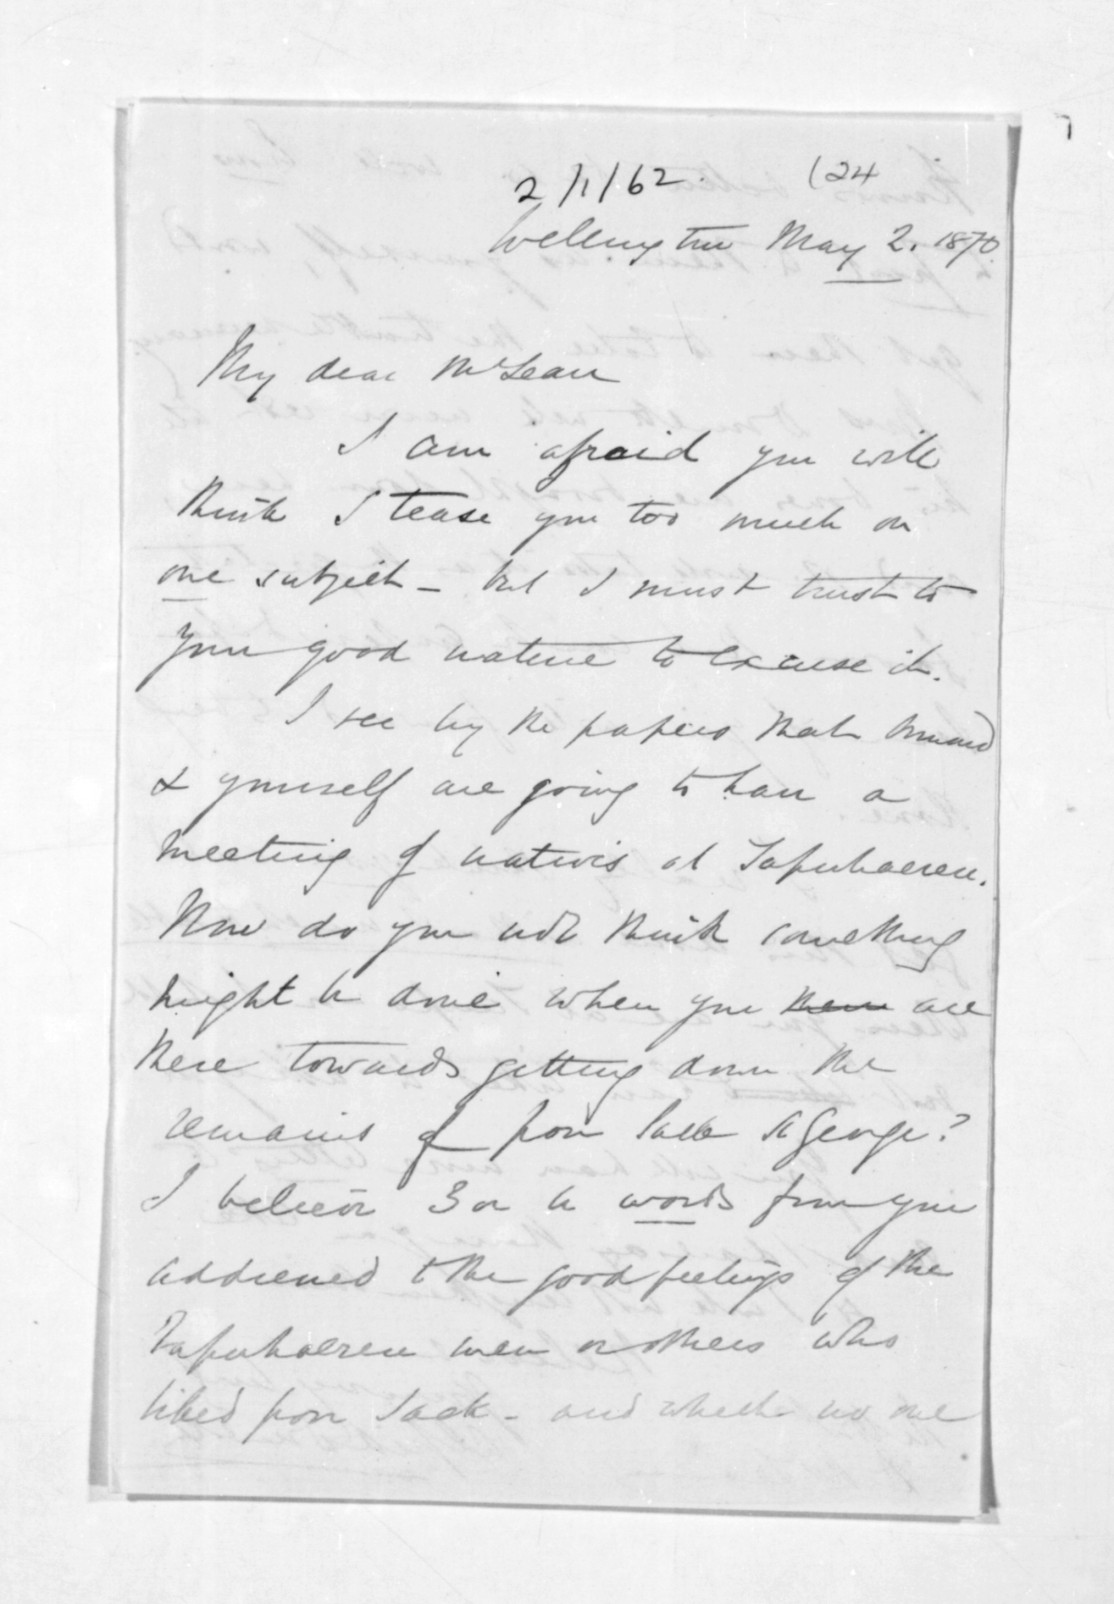 2/1/62. (24
Wellington May 2. 1870.
My dear McLean
I am afraid you will
think I tease you too much on
one subject - but I must trust to
your good nature to excuse it.
I see by the papers that Ormond
& yourself are going to have a
meeting of natives at Tapuhaeren.
Now do you not think something
might be done when you are
there towards getting down the
remains of poor Jack St George?
I believe 3 or 4 words from you
addressed to the good feelings of the
Tapuhaeren men or others who
liked poor Jack - and which no one